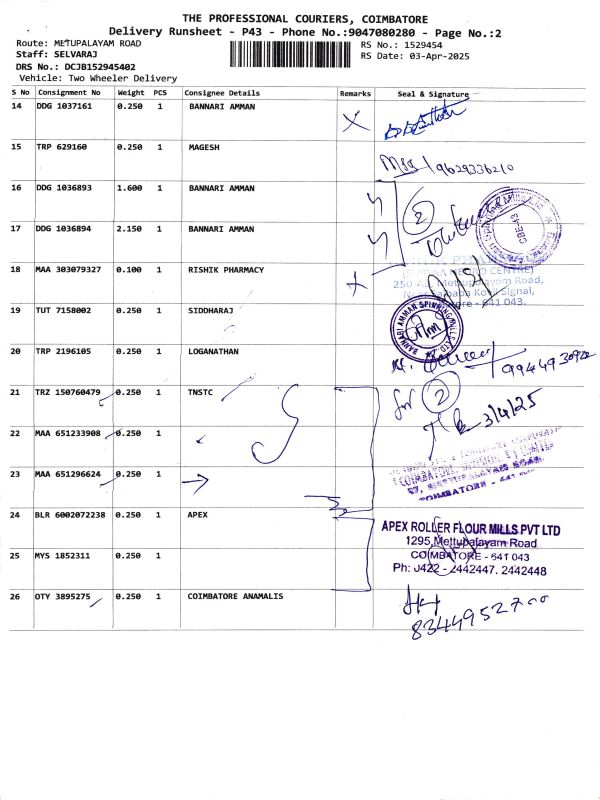 THE PROFESSIONAL COURIERS, COIMBATORE
Delivery Runsheet - P43 - Phone No.:9047080280 - Page No.:2
Route: METUPALAYAM ROAD
Staff: SELVARAJ
DRS No.: DCJB152945402
Vehicle: Two Wheeler Delivery
RS No.: 1529454
RS Date: 03-Apr-2025
S No Consignment No Weight PCS Consignee Details Remarks Seal & Signature
14 DDG 1037161 0.250 1 BANNARI AMMAN X
15 TRP 629160 0.250 1 MAGESH
9629336210
16 DDG 1036893 1.600 1 BANNARI AMMAN
2
17 DDG 1036894 2.150 1 BANNARI AMMAN
CBE-43
18 MAA 303079327 0.100 1 RISHIK PHARMACY
Mettupalayam Road,
Signal,
641 043.
19 TUT 7158002 0.250 1 SIDDHARAJ
BANNARI AMMAN SPINNING MILLS LTD
20 TRP 2196105 0.250 1 LOGANATHAN
9944930922
21 TRZ 150760479 0.250 1 TNSTC
2
3/4/25
22 MAA 651233908 0.250 1
23 MAA 651296624 0.250 1
COIMBATORE
24 BLR 6002072238 0.250 1 APEX
APEX ROLLER FLOUR MILLS PVT LTD
1295, Mettupalayam Road
COIMBATORE - 641 043
Ph: 0422 - 2442447, 2442448
25 MYS 1852311 0.250 1
26 OTY 3895275 0.250 1 COIMBATORE ANAMALIS